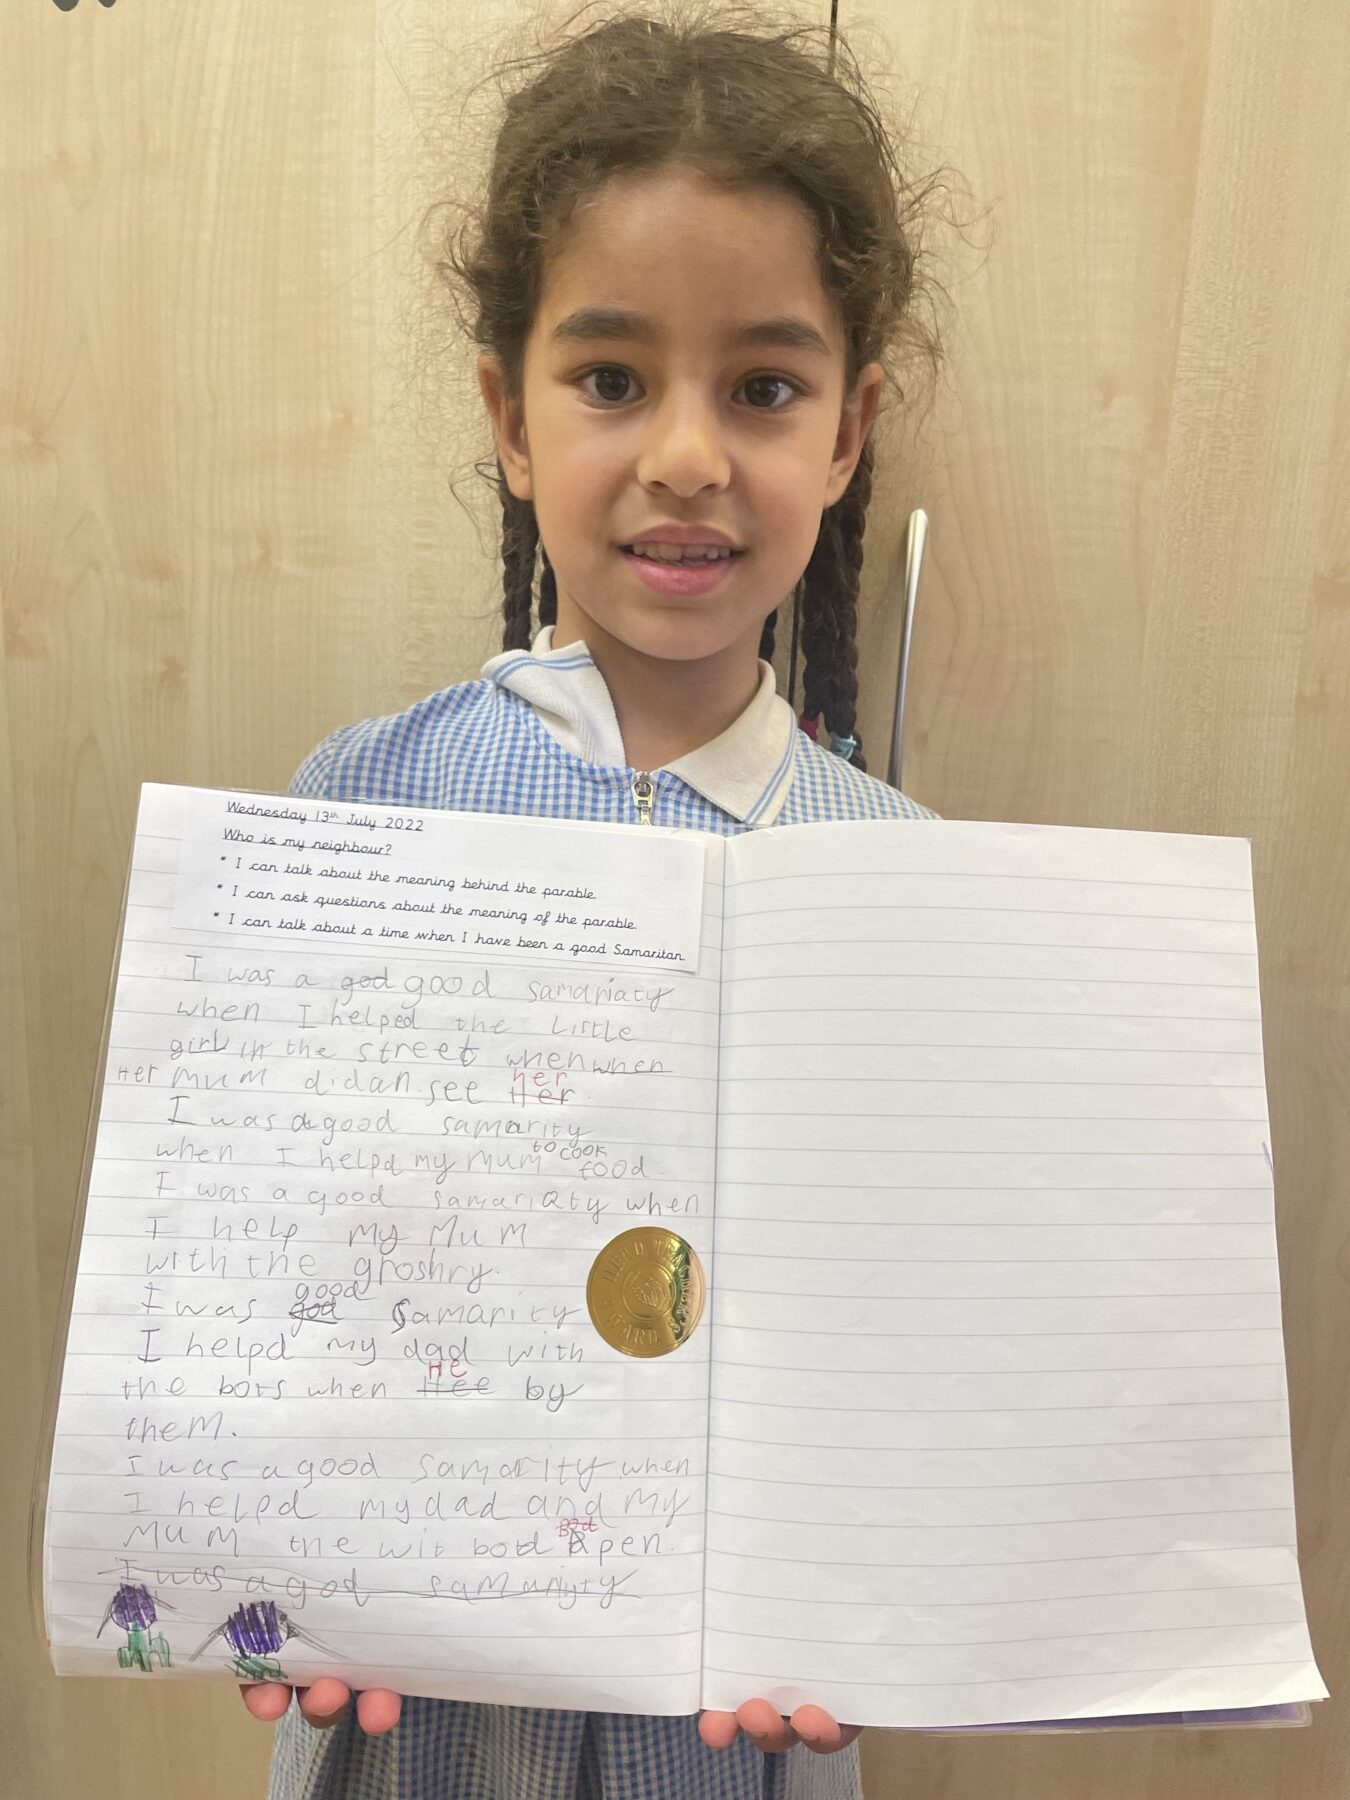 Wednesday 13th July 2022
Who is my neighbour?
* I can talk about the meaning behind the parable.
* I can ask questions about the meaning of the parable.
* I can talk about a time when I have been a good Samaritan.
I was a god good samariacy
when I helped the Little
girl in the street when when
Her MUM didan.see Her her.
I was a good samarity
when I helpd my mum to cook food.
I was a good samariaty when
I help my MuM
with the groshry.
I was god good Samarity
I helpd my dad with
the bots when Hee He by
theM.
I was a good Samarity when
I helpd my dad and My
MUM the wit botd Bed open.
I was a god saMariyty
HEAD TEACHER'S AWARD